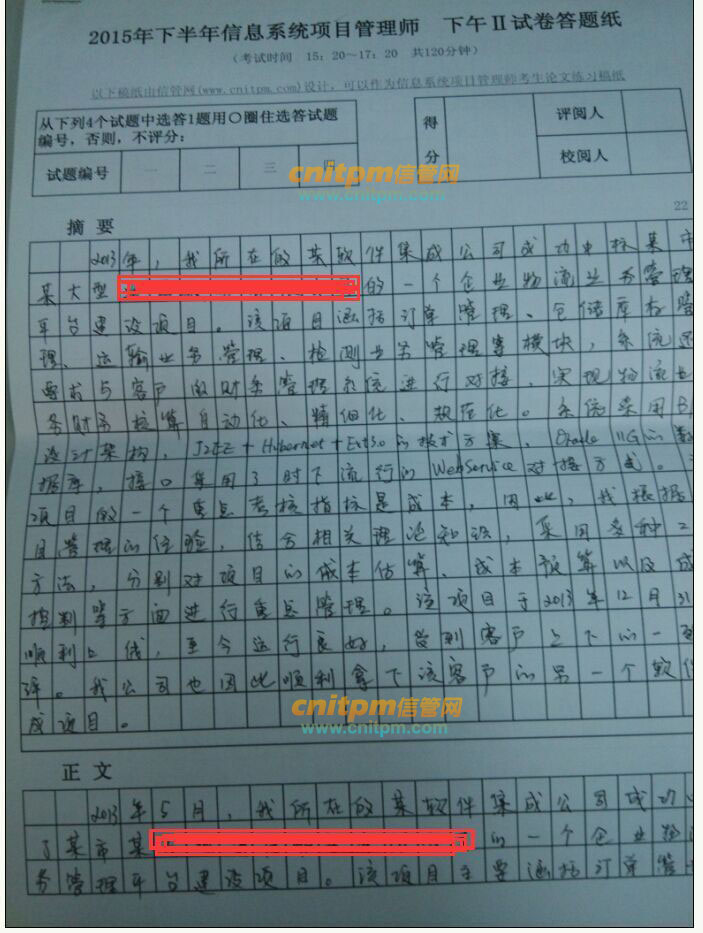 2015年下半年信息系统项目管理师 下午Ⅱ试卷答题纸
(考试时间 15:20~17:20 共120分钟)
以下稿纸由信管网(www.cnitpm.com)设计,可以作为信息系统项目管理师考生论文练习稿纸
从下列4个试题中选答1题用○圈住选答试题
编号,否则,不评分:
试题编号 一 二 三 四
得分
评阅人
校阅人
cnitpm信管网
www.cnitpm.com
22
摘要
2013年,我所在的某软件集成公司成功中标某市
某大型 的一个企业物流业务管理
平台建设项目。该项目涵括订单管理、仓储库存管
理、运输业务管理、检测业务管理等模块,系统还
要求与客户的财务管理系统进行对接,实现物流业
务财务核算自动化、精细化、规范化。系统采用B/
设计架构,J2EE+Hybernet+Ext3.0的技术方案,Oracle 11G的数
据库,接口采用了时下流行的WebService对接方式。
项目的一个重点考核指标是成本,因此,我根据
目管理的经验,结合相关理论知识,采用多种工
方法,分别对项目的成本估算、成本预算以及成
控制等方面进行重点管理。该项目于2013年12月31
顺利上线,至今运行良好,受到客户上下的一致
评。我公司也因此顺利拿下该客户的另一个软件
成项目。
cnitpm信管网
www.cnitpm.com
正文
2013年5月,我所在的某软件集成公司成功
了某市某 的一个企业物
务管理平台建设项目。该项目主要涵括订单管